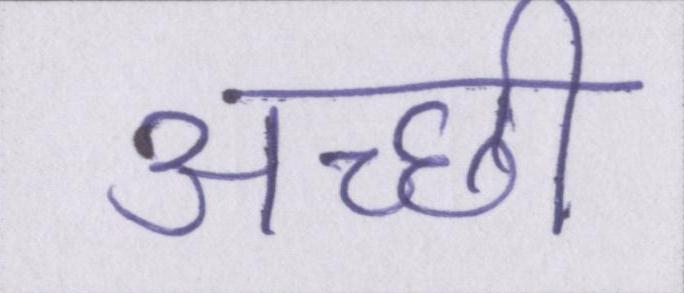 अच्छी